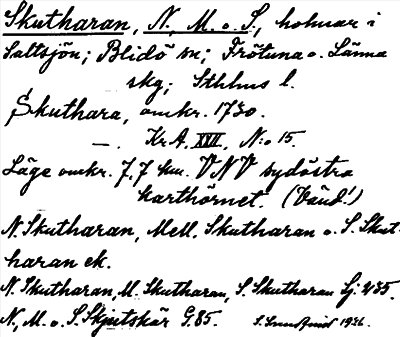 Skutharan, N., M. o. S., holmar i
Saltsjön; Blidö sn; Frötuna o. Länna
skg; Sthlms l.
Skuthara, omkr. 1730.
—. Kr.A. XVII, N:o 15.
Läge omkr. 7,7 km. VNV sydöstra
karthörnet. (Vänd!)
N. Skutharan, Mell. Skutharan o. S. Skut-
haran ek.
N. Skutharan, M. Skutharan, S. Skutharan Sj. 235.
N., M. o. S. Skjutskär G. 85. 1936.